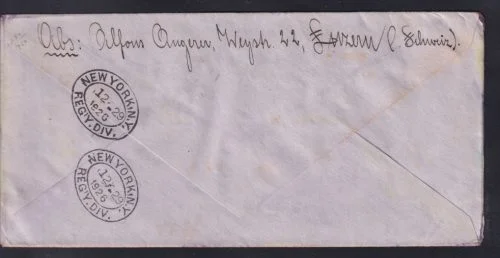 Abs: Alfons Angerer, Weystr. 22, Luzern (Schweiz).
NEW YORK, N.Y.
12-29
1926
REG'Y. DIV.
NEW YORK, N.Y.
12-29
1926
REG'Y. DIV.